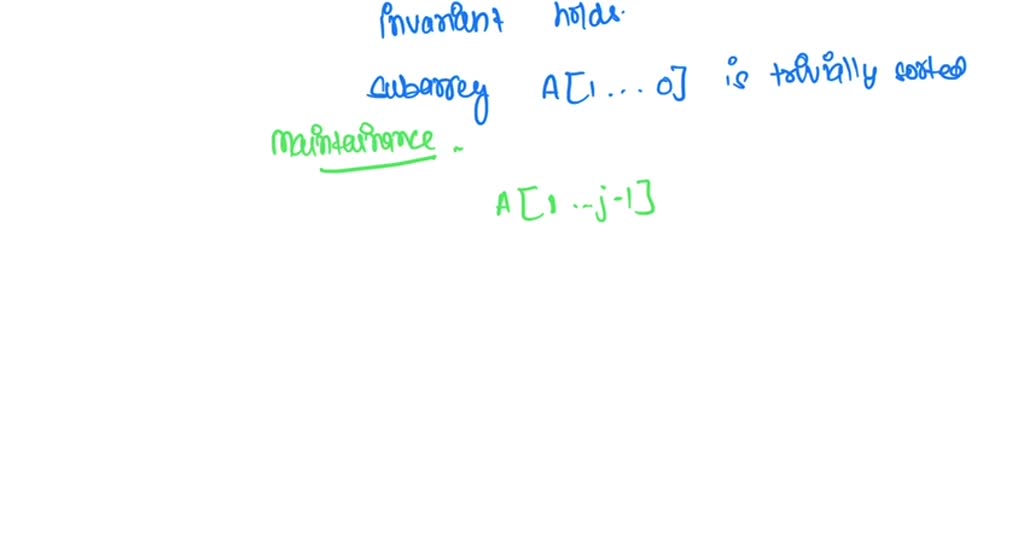 invariant holds.
subarray A[1 ... 0] is trivially sorted
maintainance -
A[1 ... j-1]